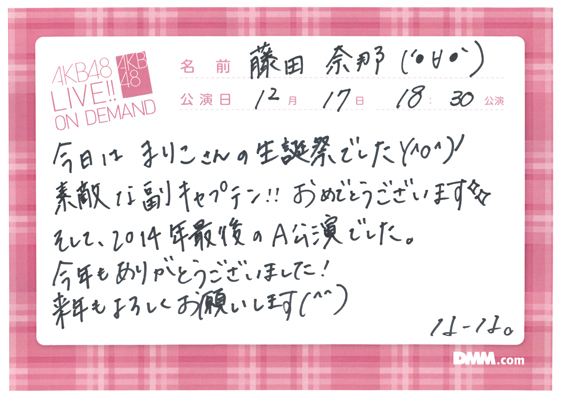 AKB48
LIVE!!
ON DEMAND
AKB
48
名前 藤田 奈那 (・∀・)
公演日 12月 17日 18:30公演
今日は まりこさんの生誕祭でした\(^o^)/
素敵な副キャプテン!! おめでとうございます☆☆
そして、2014年最後のA公演でした。
今年もありがとうございました!
来年もよろしくお願いします(^^)
なーな。
DMM.com